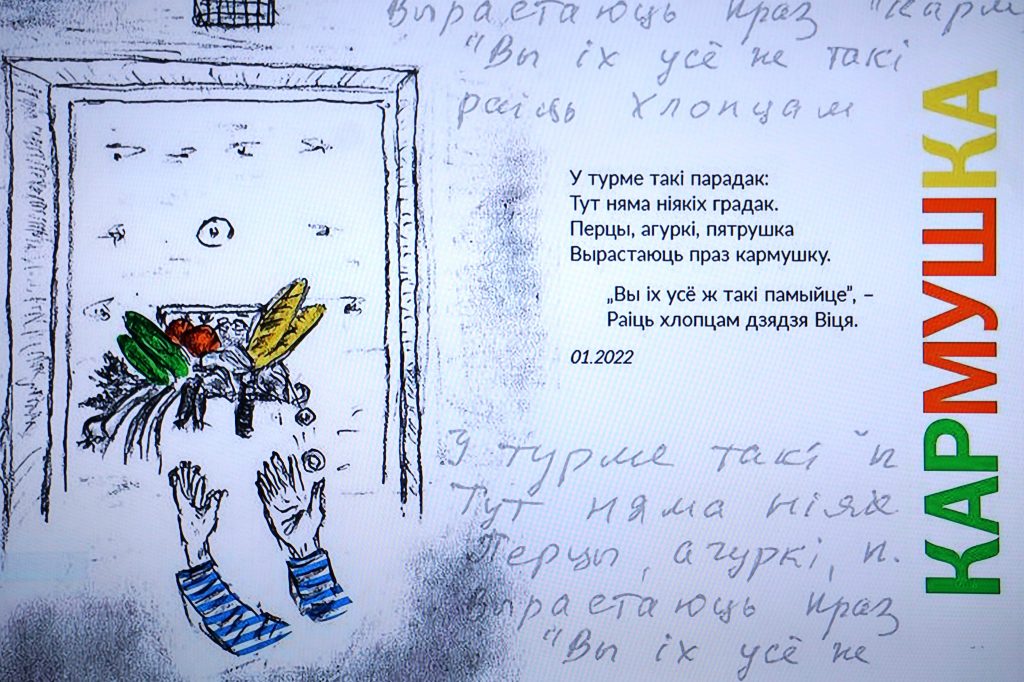 Вырастаюць праз "карм
"Вы іх усё ж такі
раіць хлопцам
У турме такі парадак:
Тут няма ніякіх градак.
Перцы, агуркі, пятрушка
Вырастаюць праз кармушку.
„Вы іх усё ж такі памыйце”, –
Раіць хлопцам дзядзя Віця.
01.2022
КАРМУШКА
У турме такі п
Тут няма ніякі
Перцы, агуркі, п.
Вырастаюць праз
"Вы іх усё ж